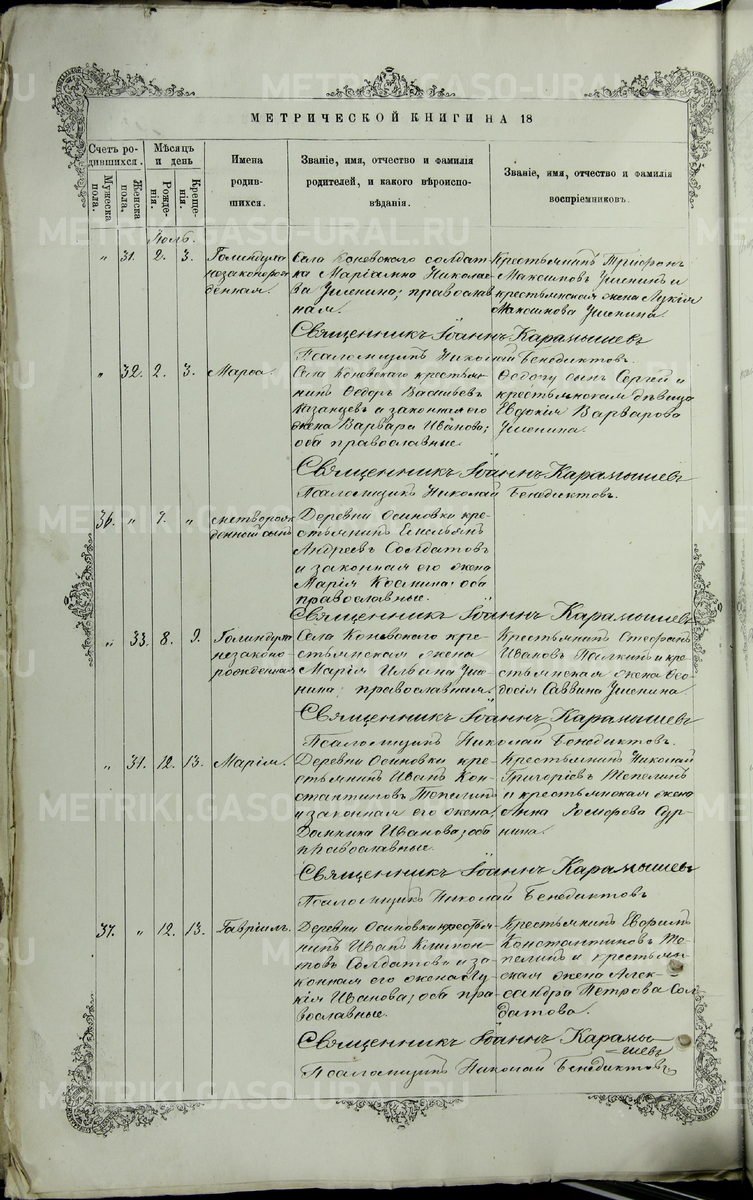 МЕТРИЧЕСКОЙ КНИГИ НА 18
Счетъ родившихся.
Мужеска пола.
Женска пола.
Мѣсяцъ и день
Рожденія.
Крещенія.
Имена родившихся.
Званіе, имя, отчество и фамилія родителей, и какого вѣроисповѣданія.
Званіе, имя, отчество и фамилія воспріемниковъ.
Іюль.
" 31. 2. 3.
Голиндуха
незаконорож
денная.
Села Коневскаго солдат-
ка Маріамна Николае-
ва Ушенина; православ
ная.
Крестьянинъ Трифонъ
Максимовъ Ушенинъ и
крестьянская жена Лукія
Максимова Ушенина.
Священникъ Іоаннъ Карамышевъ
Псаломщикъ Николай Бенедиктовъ.
" 32. 2. 3.
Марѳа.
Села Коневскаго крестья-
нинъ Ѳедоръ Васильевъ
Казанцевъ и законная его
жена Варвара Иванова;
оба православные.
сынъ Сергей и
крестьянская дѣвица
Евдокія Варварова
Ушенина.
Священникъ Іоаннъ Карамышевъ
Псаломщикъ Николай Бенедиктовъ.
36. " 7. "
мертворож
денный сынъ
Деревни Осиновки кре-
стьянинъ Емельянъ
Андреевъ Солдатовъ
и законная его жена
Марія Космина; оба
православные.
Священникъ Іоаннъ Карамышевъ
" 33. 8. 9.
Голиндуха
незаконо-
рожденная
Села Коневскаго кре-
стьянская жена
Марія Ильина Уше-
нина; православная.
Крестьянинъ Стефанъ
Ивановъ и кре-
стьянская жена Ѳео-
досія Саввина Ушенина.
Священникъ Іоаннъ Карамышевъ
Псаломщикъ Николай Бенедиктовъ.
" 31. 12. 13.
Марія.
Деревни Осиновки кре-
стьянинъ Иванъ Кон-
стантиновъ Тепелинъ
и законная его жена
Домника Иванова; оба
православные.
Крестьянинъ Николай
Григоріевъ Тепелинъ
и крестьянская жена
Анна
нина.
Священникъ Іоаннъ Карамышевъ
Псаломщикъ Николай Бенедиктовъ
37. " 12. 13.
Гавріилъ.
Деревни Осиновки крестья-
нинъ Иванъ
Солдатовъ и за-
конная его жена Лу-
кія Иванова; оба пра-
вославные.
Крестьянинъ Евфимъ
Константиновъ Те-
пелинъ и крестьян-
ская жена Алек-
сандра Петрова Сол-
датова.
Священникъ Іоаннъ Карамы-
шевъ
Псаломщикъ Николай Бенедиктовъ
METRIKI.GASO-URAL.RU